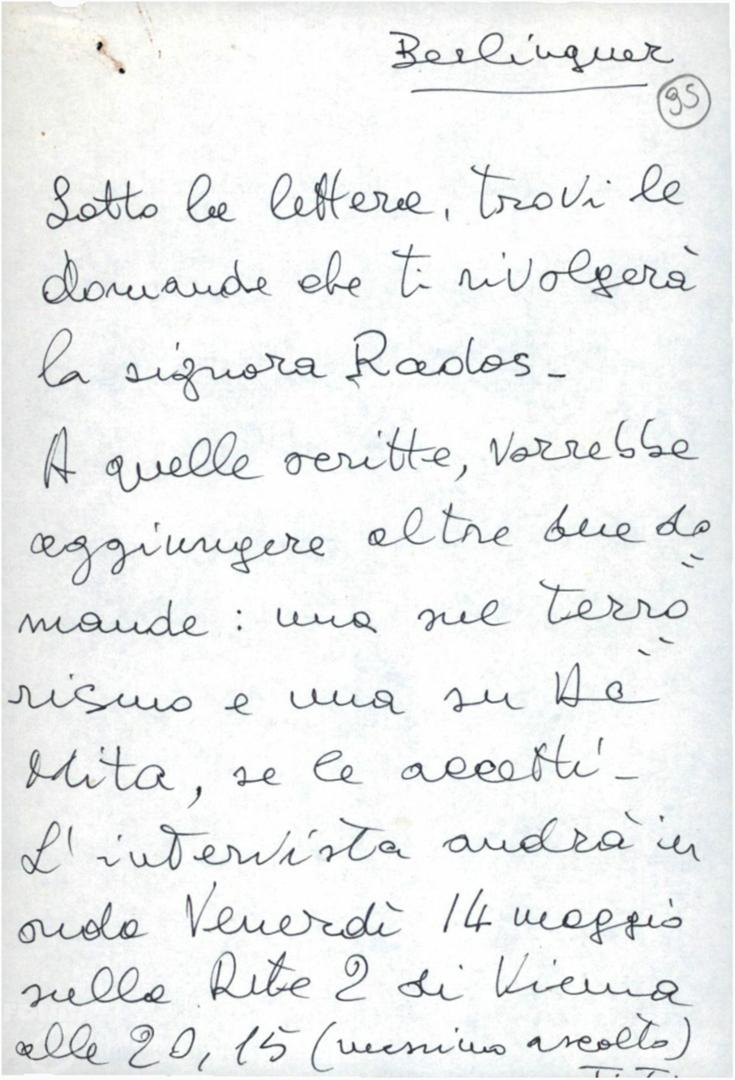 Berlinguer
95
Sotto la lettera, trovi le
domande che ti rivolgerà
la signora Rados-
A quelle scritte, vorrebbe
aggiungere altre due do=
mande: una sul terro=
rismo e una su De
Mita, se le accetti-
L'intervista andrà in
onda Venerdì 14 maggio
sulla Rete 2 di Vienna
alle 20,15 (massimo ascolto)